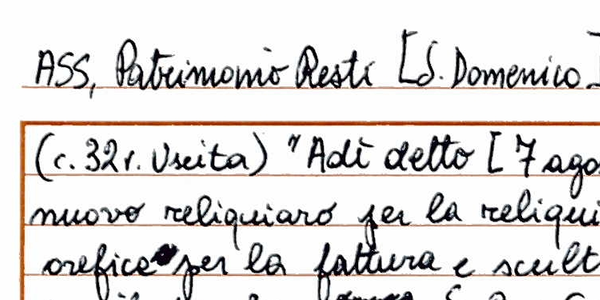 ASS, Patrimonio Resti [S. Domenico]
(c. 32r. Uscita) "Adì detto [7 ago
nuovo reliquiaro per la reliqui
orefice per la fattura e scult